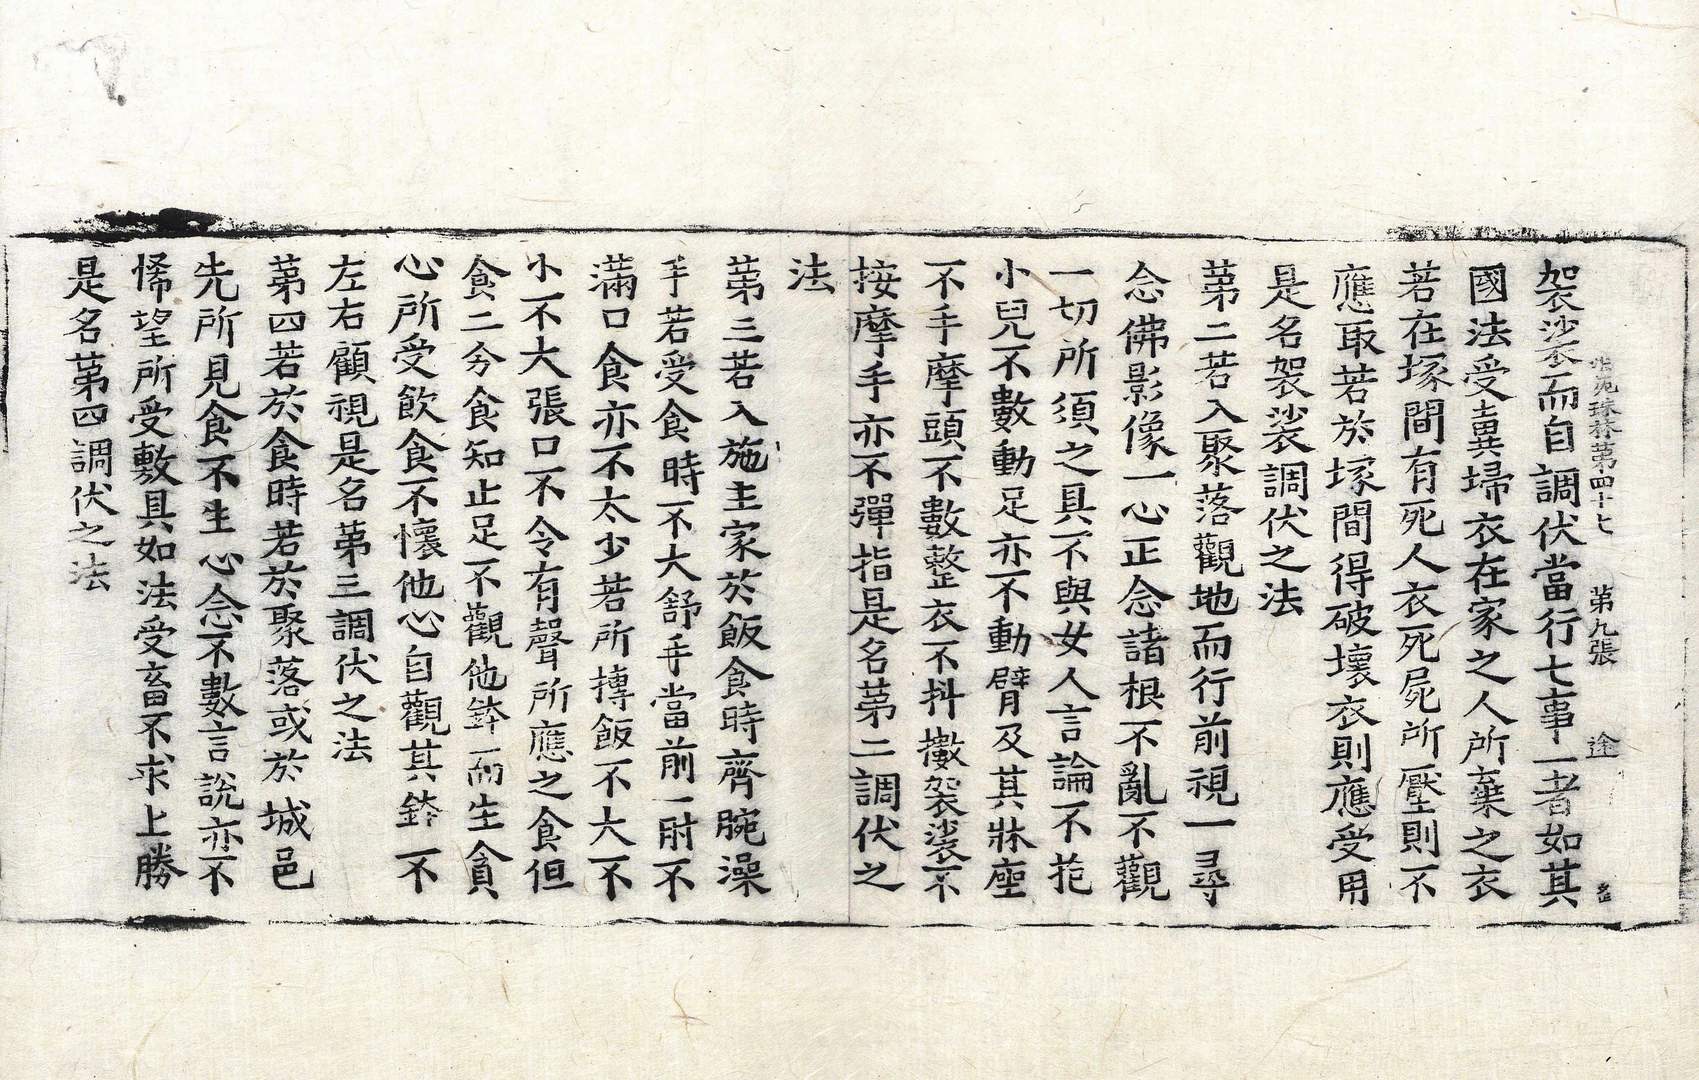 法苑珠林第四十七 第九張 途
袈裟衣而自調伏當行七事一者如其
國法受糞掃衣在家之人所棄之衣
若在塚間有死人衣死屍所壓則不
應取若於塚間得破壞衣則應受用
是名袈裟調伏之法
第二若入聚落觀地而行前視一尋
念佛影像一心正念諸根不亂不觀
一切所須之具不與女人言論不抱
小兒不數動足亦不動臂及其牀座
不手摩頭不數整衣不抖擻袈裟不
按摩手亦不彈指是名第二調伏之
法
第三若入施主家於飯食時齊腕澡
手若受食時不大舒手當前一肘不
滿口食亦不太少若所摶飯不大不
小不大張口不令有聲所應之食但
食二分食知止足不觀他鉢而生貪
心所受飲食不壞他心自觀其鉢不
左右顧視是名第三調伏之法
第四若於食時若於聚落或於城邑
先所見食不生心念不數言說亦不
悕望所受敷具如法受畜不求上勝
是名第四調伏之法